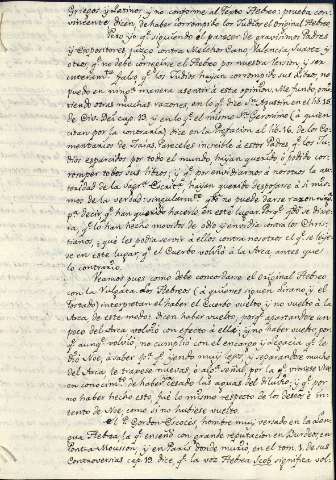 Griegos, y Latinos, y no conforme al Texto Hebreo: prueba con-
vincente, dicen, de haber corrompido los Judios el original Hebreo.
Pero yo q.e siguiendo el parecer de gravissimos Padres
y Expositores juzgo contra Melchor Cano, Valencia, Suarez, y
otros q.e no debe corregirse el Hebreo por nuestra version, y sin-
falso q.e los Judios hayan corrompido sus Libros, no
puedo en ning.a manera asentir a esta opinion. Me fundo omi-
tiendo otras muchas razones, en lo q.e dice S.n Agustin en el lib. 15
de Civ. Dei cap. 13. y en lo q.e el mismo S.n Geronimo (à quien
citan por la contraria) dice en la Prefacion al lib. 16. de los Co-
mentarios de Isaias. Pareceles increible à estos Padres q.e los Ju-
dios esparcidos por todo el mundo hayan querido ò podido cor-
romper todos sus libros; y q.e por envidiarnos à nosotros la au-
toridad de la Sagr.a Escrit.a hayan querido despojarse à si mis-
mos de la verdad: singularm.te q.do no puede darse razon
p.a decir q.e han querido hacerlo en este lugar. Porq.e q.do se diria
q.e lo han hecho movidos de odio y envidia contra los Chris-
tianos, que les podia servir à ellos contra nosotros el q.e se leyese
en este lugar q.e el Cuerbo volviò à la Arca antes que
lo contrario.
Veamos pues como debe concordarse el original Hebreo
con la Vulgata. Los Hebreos (à quienes siguen Lirano, y el
Tostado) interpretan el haber el Cuerbo vuelto, y no vuelto à la
Arca de este modo: dicen haber vuelto, porq.e apartandose un
poco del Arca volviò con efecto à ella; y no haber vuelto, por-
q.e aunq.e volviò, no cumpliò con el encargo y legacia q.e le
diò Noè, à saber p.a q.e yendo muy lejos, y separandose mucho
del Arca le traxese nuevas, ò alg.a señal, por la q.e viniese Noè
en conocim.to de haber cesado las aguas del diluvio, y q.e por
no haber hecho esto, fuè lo mismo respecto de los deseos è in-
tento de Noè, como si no hubiese vuelto.
El P.e Gordon Escocès, hombre muy versado en la len-
gua Hebrea (la q.e enseñò con grande reputacion en Burdeos, en
Pont-a-Mousson, y en Paris donde muriò) en el tom. 1. de sus
Controversias cap. 19. dice, q.e la voz Hebrea Scob significa vol-